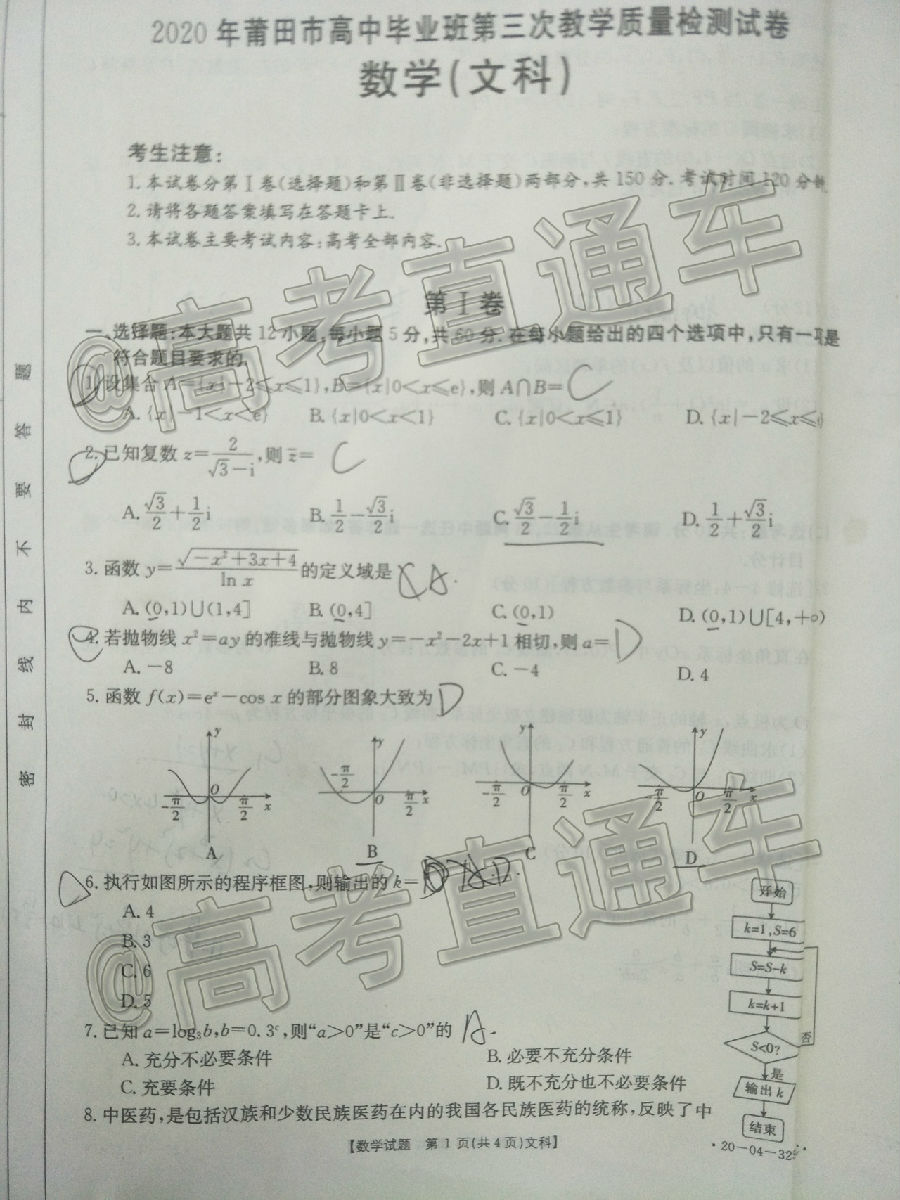 2020年莆田市高中毕业班第三次教学质量检测试卷
数学(文科)
考生注意:
1.本试卷分第Ⅰ卷(选择题)和第Ⅱ卷(非选择题)两部分,共150分.考试时间120分钟
2.请将各题答案填写在答题卡上.
3.本试卷主要考试内容:高考全部内容.
第Ⅰ卷
一、选择题:本大题共12小题,每小题5分,共60分.在每小题给出的四个选项中,只有一项是
符合题目要求的.
1.设集合A={x|-2≤x≤1},B={x|0<x≤e},则A∩B= C
A.{x|-1<x<e} B.{x|0<x<1} C.{x|0<x≤1} D.{x|-2≤x≤
2.已知复数z=2/(√3-i),则z̄= C
A.√3/2+1/2i B.1/2-√3/2i C.√3/2-1/2i D.1/2+√3/2i
3.函数y=√(-x²+3x+4)/ln x的定义域是 A.
A.(0,1)∪(1,4] B.(0,4] C.(0,1) D.(0,1)∪[4,+∞)
4.若抛物线x²=ay的准线与抛物线y=-x²-2x+1相切,则a= D
A.-8 B.8 C.-4 D.4
5.函数f(x)=eˣ-cos x的部分图象大致为 D
y -π/2 O π/2 x
A
y -π/2 O π/2 x
B
y -π/2 O π/2 x
C
y -π/2 O π/2 x
D
6.执行如图所示的程序框图,则输出的k=
A.4
B.3
C.6
D.5
开始
k=1,S=6
S=S-k
k=k+1
S<0?
否
是
输出k
结束
7.已知a=log₃b,b=0.3ᶜ,则“a>0”是“c>0”的 A.
A.充分不必要条件 B.必要不充分条件
C.充要条件 D.既不充分也不必要条件
8.中医药,是包括汉族和少数民族医药在内的我国各民族医药的统称,反映了中
【数学试题 第1页(共4页)文科】
·20-04-32
密封线内不要答题
@高考直通车
@高考直通车